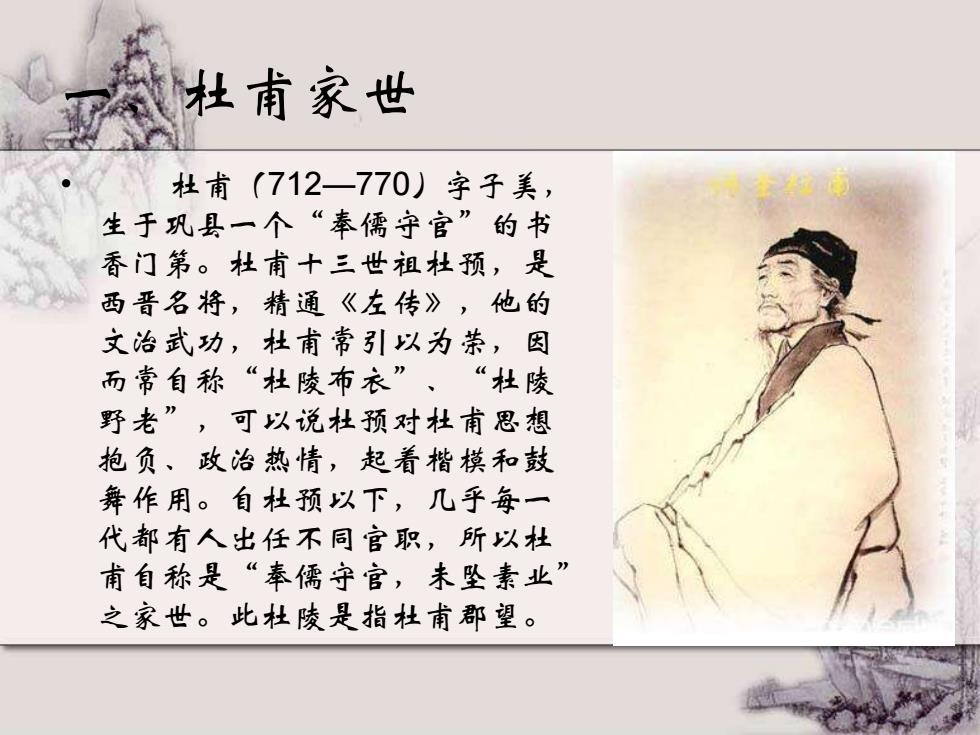 一、杜甫家世
• 杜甫（712—770）字子美，
生于巩县一个“奉儒守官”的书
香门第。杜甫十三世祖杜预，是
西晋名将，精通《左传》，他的
文治武功，杜甫常引以为荣，因
而常自称“杜陵布衣”、“杜陵
野老”，可以说杜预对杜甫思想
抱负、政治热情，起着楷模和鼓
舞作用。自杜预以下，几乎每一
代都有人出任不同官职，所以杜
甫自称是“奉儒守官，未坠素业”
之家世。此杜陵是指杜甫郡望。
杜甫